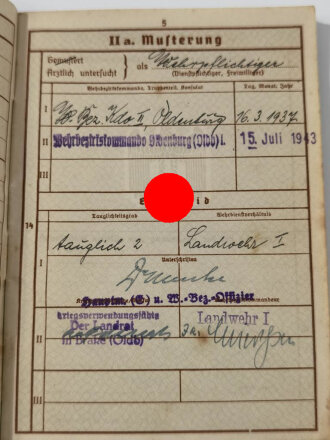 5
IIa. Musterung
Gemustert als Wehrpflichtiger
Ärztlich untersucht (Dienstpflichtiger, Freiwilliger)
Wehrbezirkskommando, Truppenteil, Konsulat Tag, Monat, Jahr
I
W. Bez. Kdo II, Oldenburg 16.3.1937
II Wehrbezirkskommando Oldenburg (Oldb) I. 15. Juli 1943
III
14 Tauglichkeitsgrad Wehrdienstverhältnis
I tauglich 2 Landwehr I
Unterschriften
Hauptm. (E) u. W.-Bez.-Offizier
II kriegsverwendungsfähig Landwehr I
Der Landrat
in Brake (Oldb)
III